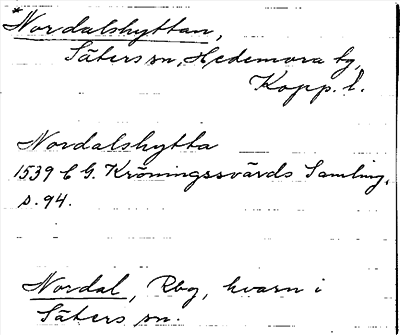 *Nordalshyttan,
Säters sn, Hedemora tg,
Kopp. l.
Nordalshytta
1539 C G. Kröningssvärds Samling,
s. 94.
Nordal, Rbg, kvarn i
Säters sn.